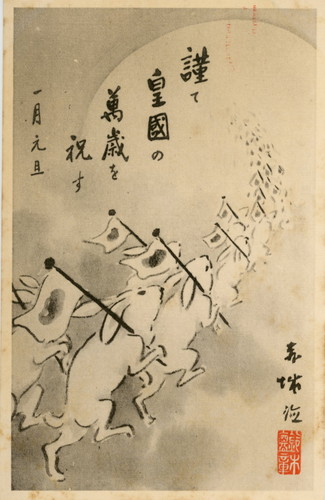 謹て
皇國の
萬歳を
祝す
一月元旦